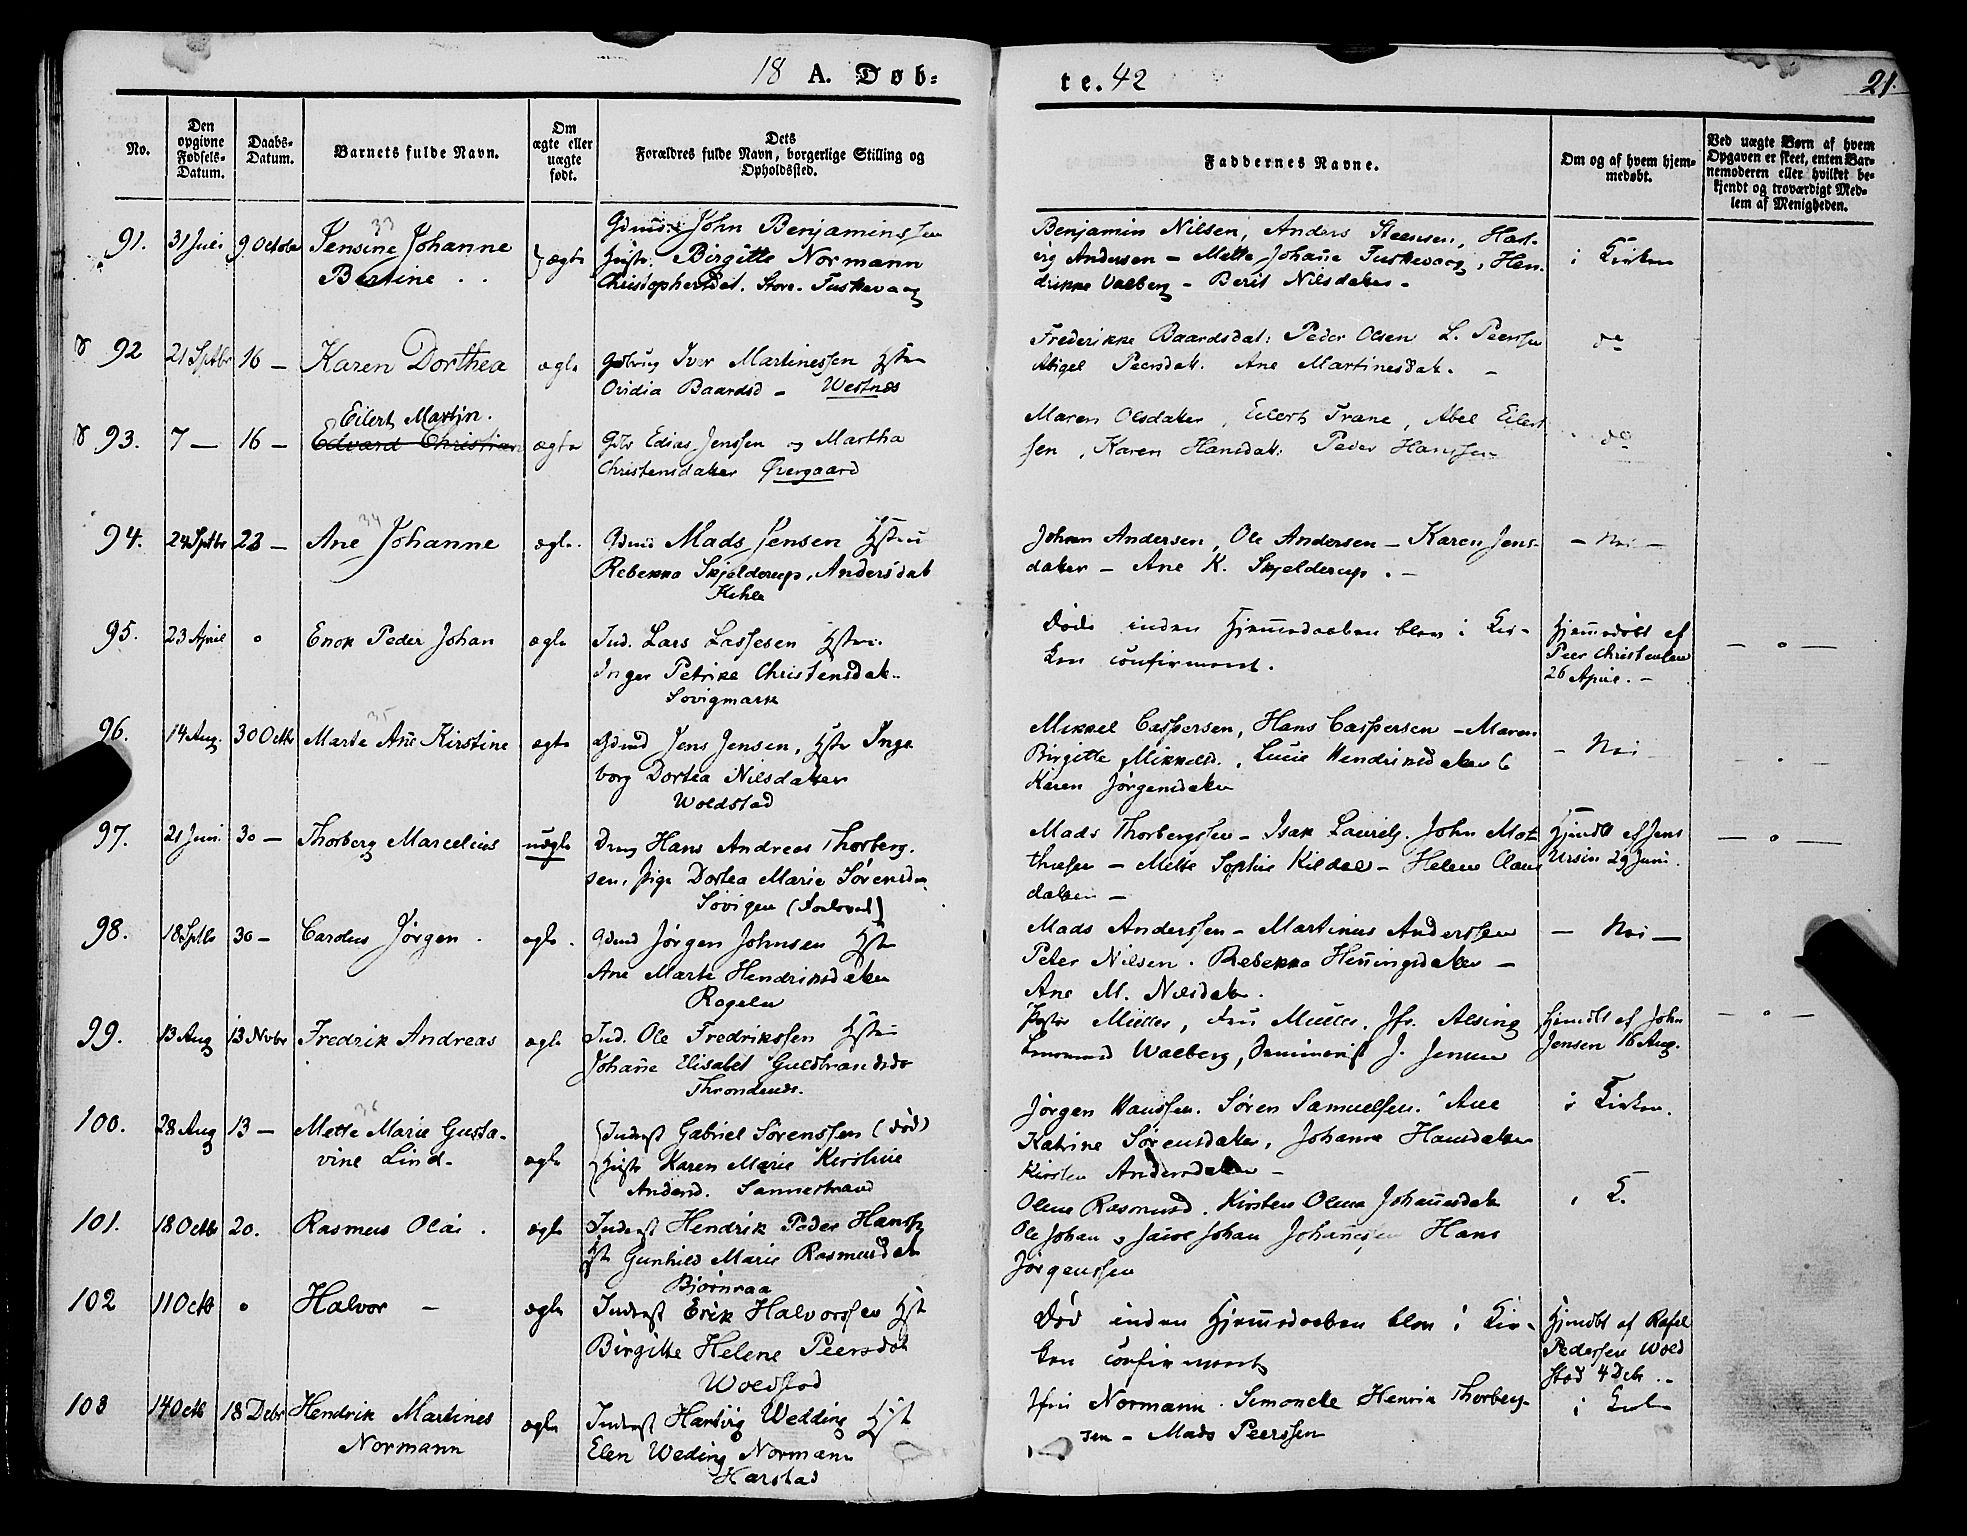 18 A. Døb= te. 42
21.
No.
Den opgivne Fødsels-Datum.
Daabs-Datum.
Barnets fulde Navn.
Om ægte eller uægte født.
Dets Forældres fulde Navn, borgerlige Stilling og Opholdssted.
Faddernes Navne.
Om og af hvem hjemmedøbt.
Ved uægte Børn af hvem Opgaven er skeet, enten Barnemoderen eller hvilket bekjendt og troværdigt Medlem af Menigheden.
91. 31 Juli 9 October Jensine Johanne ægte John Benjaminssen
33
Bertine Birgitte Normann
Christophersdat. Store Tuskevaag
Benjamin Nilsen, Anders Steensen, Hart-
vig Andersen – Mette Johañe Tuskevaag, Hen-
drikke Valberg – Berit Nilsdater – i Kirken
92 21 Septbr 16 – Karen Dorthea ægte Iver Martinessen Hstru
Ovidia Baardsd – Westnes
Frederikke Baardsdat: Peder Olsen L. Peersen
Abigel Peersdat. Ane Martinesdat. – do
93. 7 – 16 – Eilert Martin.
Edvard Christian ægte Edias Jenssen og Martha
Christensdater Øvergaard
Maren Olsdater, Eilert Trane, Abel Eilert
sen, Karen Hansdat: Peder Hanssen do
94. 24 Septbr 23 – Ane Johanne ægte. Mads Jensen Hstru
34
Rebekka Skjelderup, Andersdat
Kihle
Johan Andersen, Ole Andersen – Karen Jens-
dater – Ane K. Skjelderup. – – Nei –
95. 23 April o Enok Peder Johan ægte Ind. Lars Lassesen Hstru
Inger Petrike Christensdat.
Sørvigmark
Døde inden Hjemmedaaben blev i Kir-
ken confirmeret.
Hjemmedøbt af
Peer Christensen
26 April. –
96. 14 Aug. 30 Octbr Marte Añe Kirstine ægte Jens Jensen, Hstr Inge
35
borg Dortea Nilsdater
Woldstad
Mikkel Caspersen, Hans Caspersen – Maren
Birgitte Mikkelsd., Lucie Hendriksdater
Karen Jørgensdater – Nei
97. 21 Juni 30 – Thorberg Marcelius uægte Dreng Hans Andreas Thorberg-
sen, Pige Dortea Marie Sørensda
Sørvigen (Forlovet)
Mads Thorbergsen – Isak Laurits. John Mat
thiesen – Mette Sophie Kildal – Helene Olaus
daten –
Hjmdbt af Jens
Ursin 29 Juni.
98. 18 Septb 30 – Cardus Jørgen. ægte. Jørgen Johnsen Hstr
Ane Marte Hendriksdater
Rogeln
Mads Anderssen – Martinus Anderssen
Peter Nilsen. Rebekka Henningsdater –
Ane M. Nilsdatr. – Nei –
99. 13 Aug 13 Novbr Fredrik Andreas ægte Ind. Ole Fredrikssen Hstru
Johañe Elisabet Guldbrandsdr
Throndenes.
Pastor Müller, Fru Müller, Jfr. Alsing
Walberg, Seminarist J. Jensen
Hjmdbt af John
Jensen 16 Aug.
100. 28 Aug 13 – Mette Marie Gusta-
36
vine Lind. ægte Inderst Gabriel Sørenssen (død)
Hustr Karen Marie Kirstine
Andersd. Sannestrand
Jørgen Hanssen. Søren Samuelsen. Ane
Katrine Sørensdater, Johanna Hansdater
Kirsten Andersdater – i Kirken.
101. 18 Octbr 20. Rasmus Olai. ægte Inderst Hendrik Peder Hanss
Hst Gunhild Marie Rasmusdat
Bjørnraa
Olina Rasmusd. Kirsten Olena Johannesdat
Ole Johan Johan Johannessen Hans
Jørgenssen i K.
102 11 Octb o Halvor – ægte Inderst Erik Halvorssen Hst
Birgitte Helene Peersdat
Woldstad
Død inden Hjemmedaaben blev i Kir-
ken confirmeret
Hjmdbt af Rafel
Pedersen Wold
stad 4 Debr. –
103 14 Octb 18 Debr Hendrik Martines
Normann ægte Inderst Hartvig Wedding Hst
Elen Weding Normann
Harstad
Normann. Simonette Henrik Thorberg-
sen – Mads Peerssen i Kirk